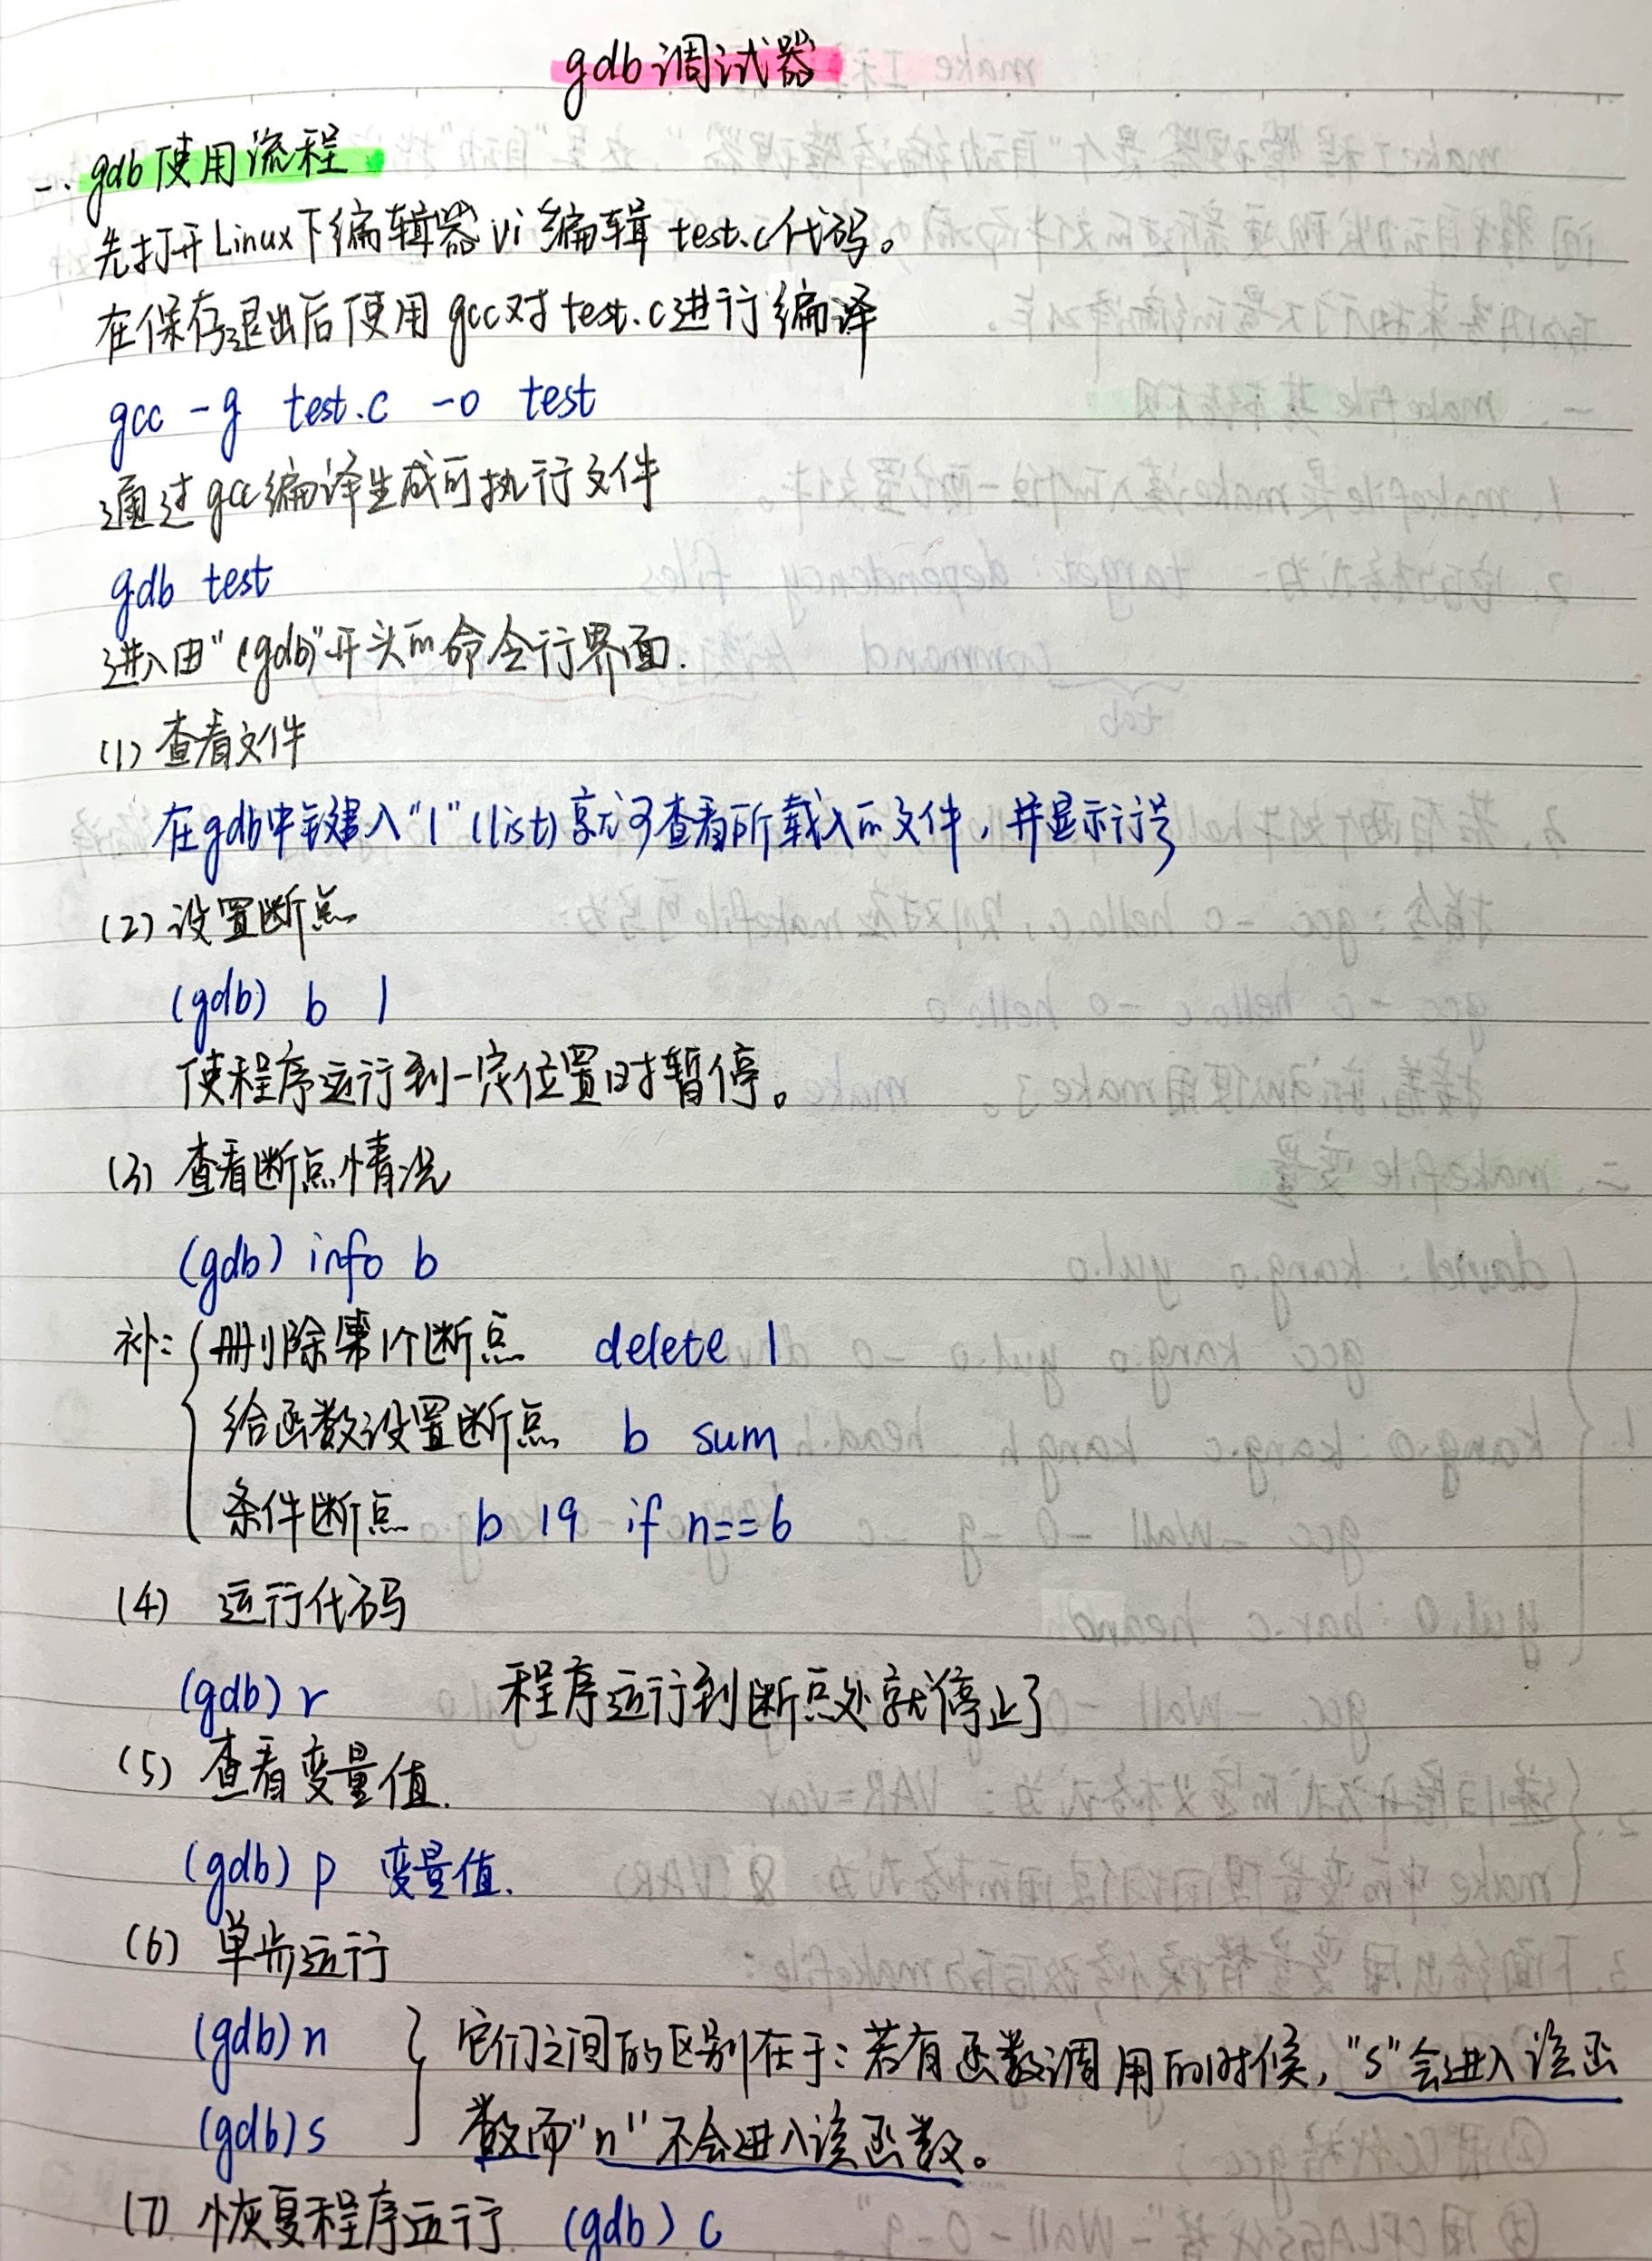 gdb调试器
一. gdb使用流程
先打开Linux下编辑器vi编辑 test.c代码。
在保存退出后使用gcc对test.c进行编译
gcc -g test.c -o test
通过gcc编译生成可执行文件
gdb test
进入由"(gdb)"开头的命令行界面.
(1) 查看文件
在gdb中键入"l"(list)就可查看所载入的文件,并显示行号
(2) 设置断点
(gdb) b 1
使程序运行到一定位置时暂停。
(3) 查看断点情况
(gdb) info b
补: 删除第1个断点 delete 1
给函数设置断点 b sum
条件断点 b 19 if n==6
(4) 运行代码
(gdb) r 程序运行到断点处就停止了
(5) 查看变量值.
(gdb) p 变量值.
(6) 单步运行
(gdb) n 它们之间的区别在于:若有函数调用的时候,"s"会进入该函
(gdb) s 数而"n"不会进入该函数。
(7) 恢复程序运行 (gdb) c